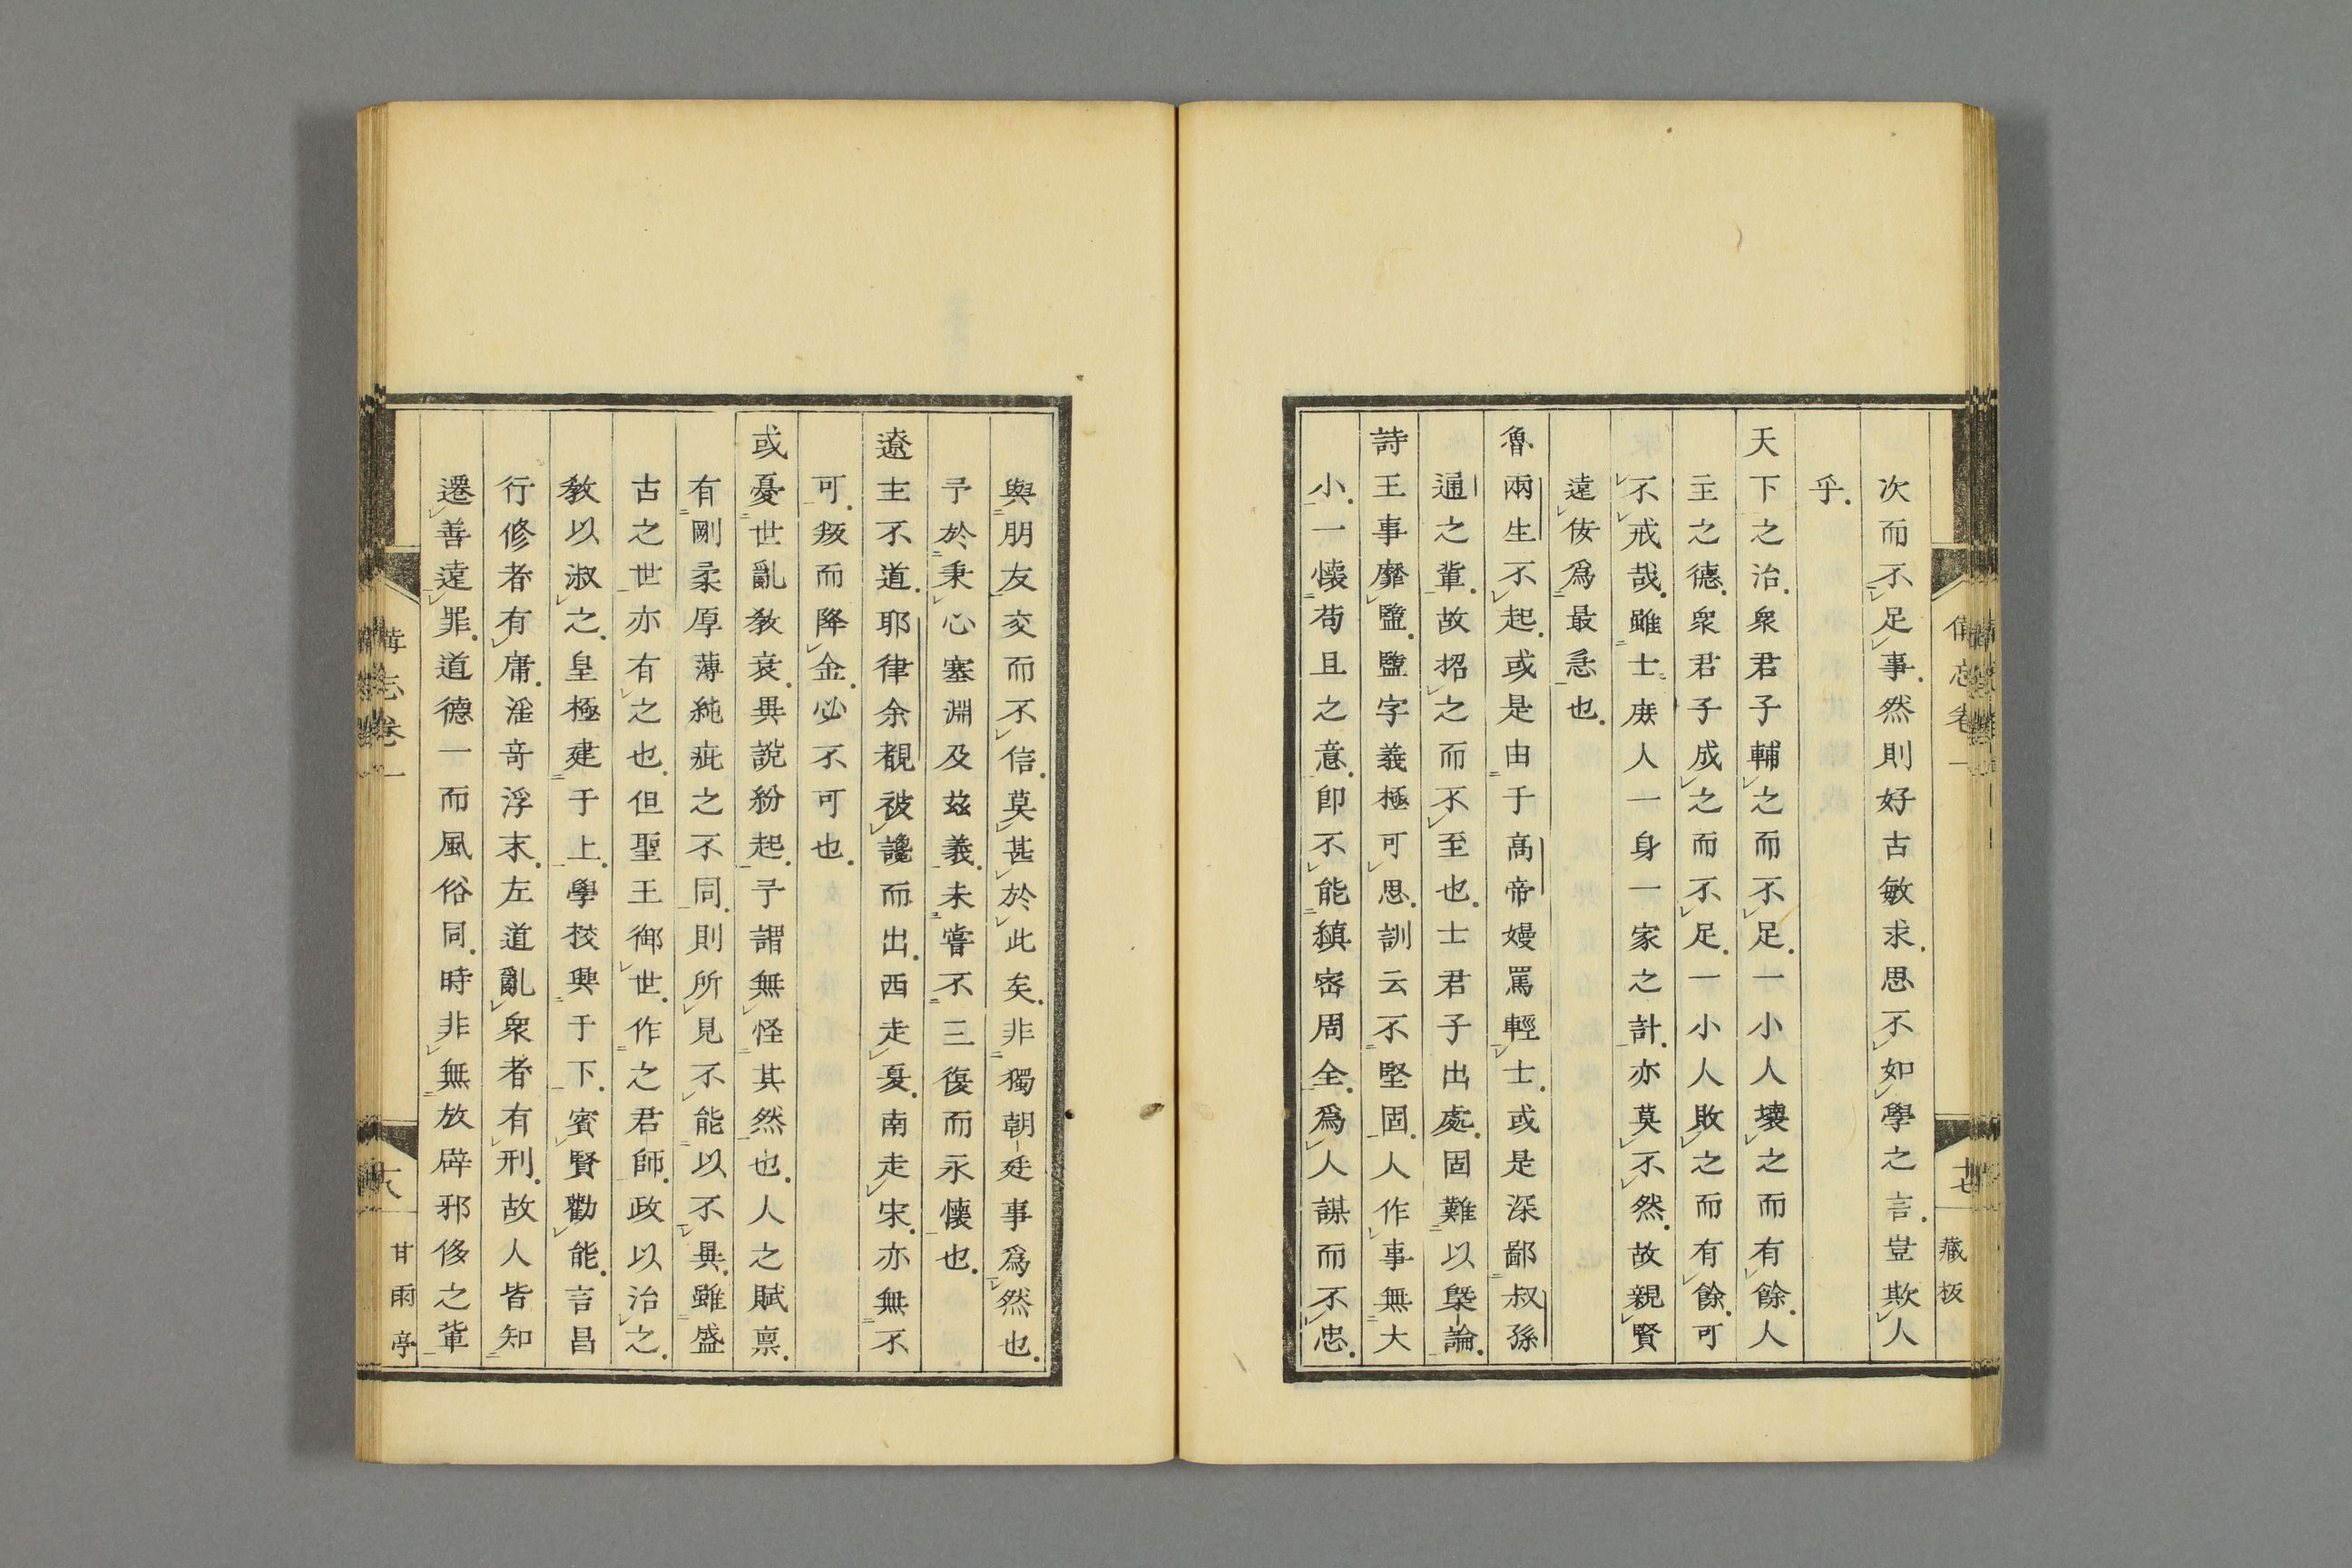 次而不足事然則好古敏求思不如學之言豈欺人
乎
天下之治衆君子輔之而不足一小人壞之而有餘人
主之德衆君子成之而不足一小人敗之而有餘可
不戒哉雖士庶人一身一家之計亦莫不然故親賢
遠佞爲最急也
魯兩生不起或是由于高帝嫚罵輕士或是深鄙叔孫
通之輩故招之而不至也士君子出處固難以槩論
詩王事靡盬盬字義極可思訓云不堅固人作事無大
小一懷苟且之意卽不能縝密周全爲人謀而不忠
備忘卷一
十七
藏板
與朋友交而不信莫甚於此矣非獨朝廷事爲然也
予於秉心塞淵及茲義未嘗不三復而永懷也
遼主不道耶律余覩被讒而出西走夏南走宋亦無不
可叛而降金必不可也
或憂世亂教衰異說紛起予謂無怪其然也人之賦禀
有剛柔厚薄純疵之不同則所見不能以不異雖盛
古之世亦有之也但聖王御世作之君師政以治之
教以淑之皇極建于上學校興于下賓賢勸能言昌
行修者有庸淫奇浮末左道亂衆者有刑故人皆知
遷善遠罪道德一而風俗同時非無放辟邪侈之輩
備忘卷一
十八
甘雨亭